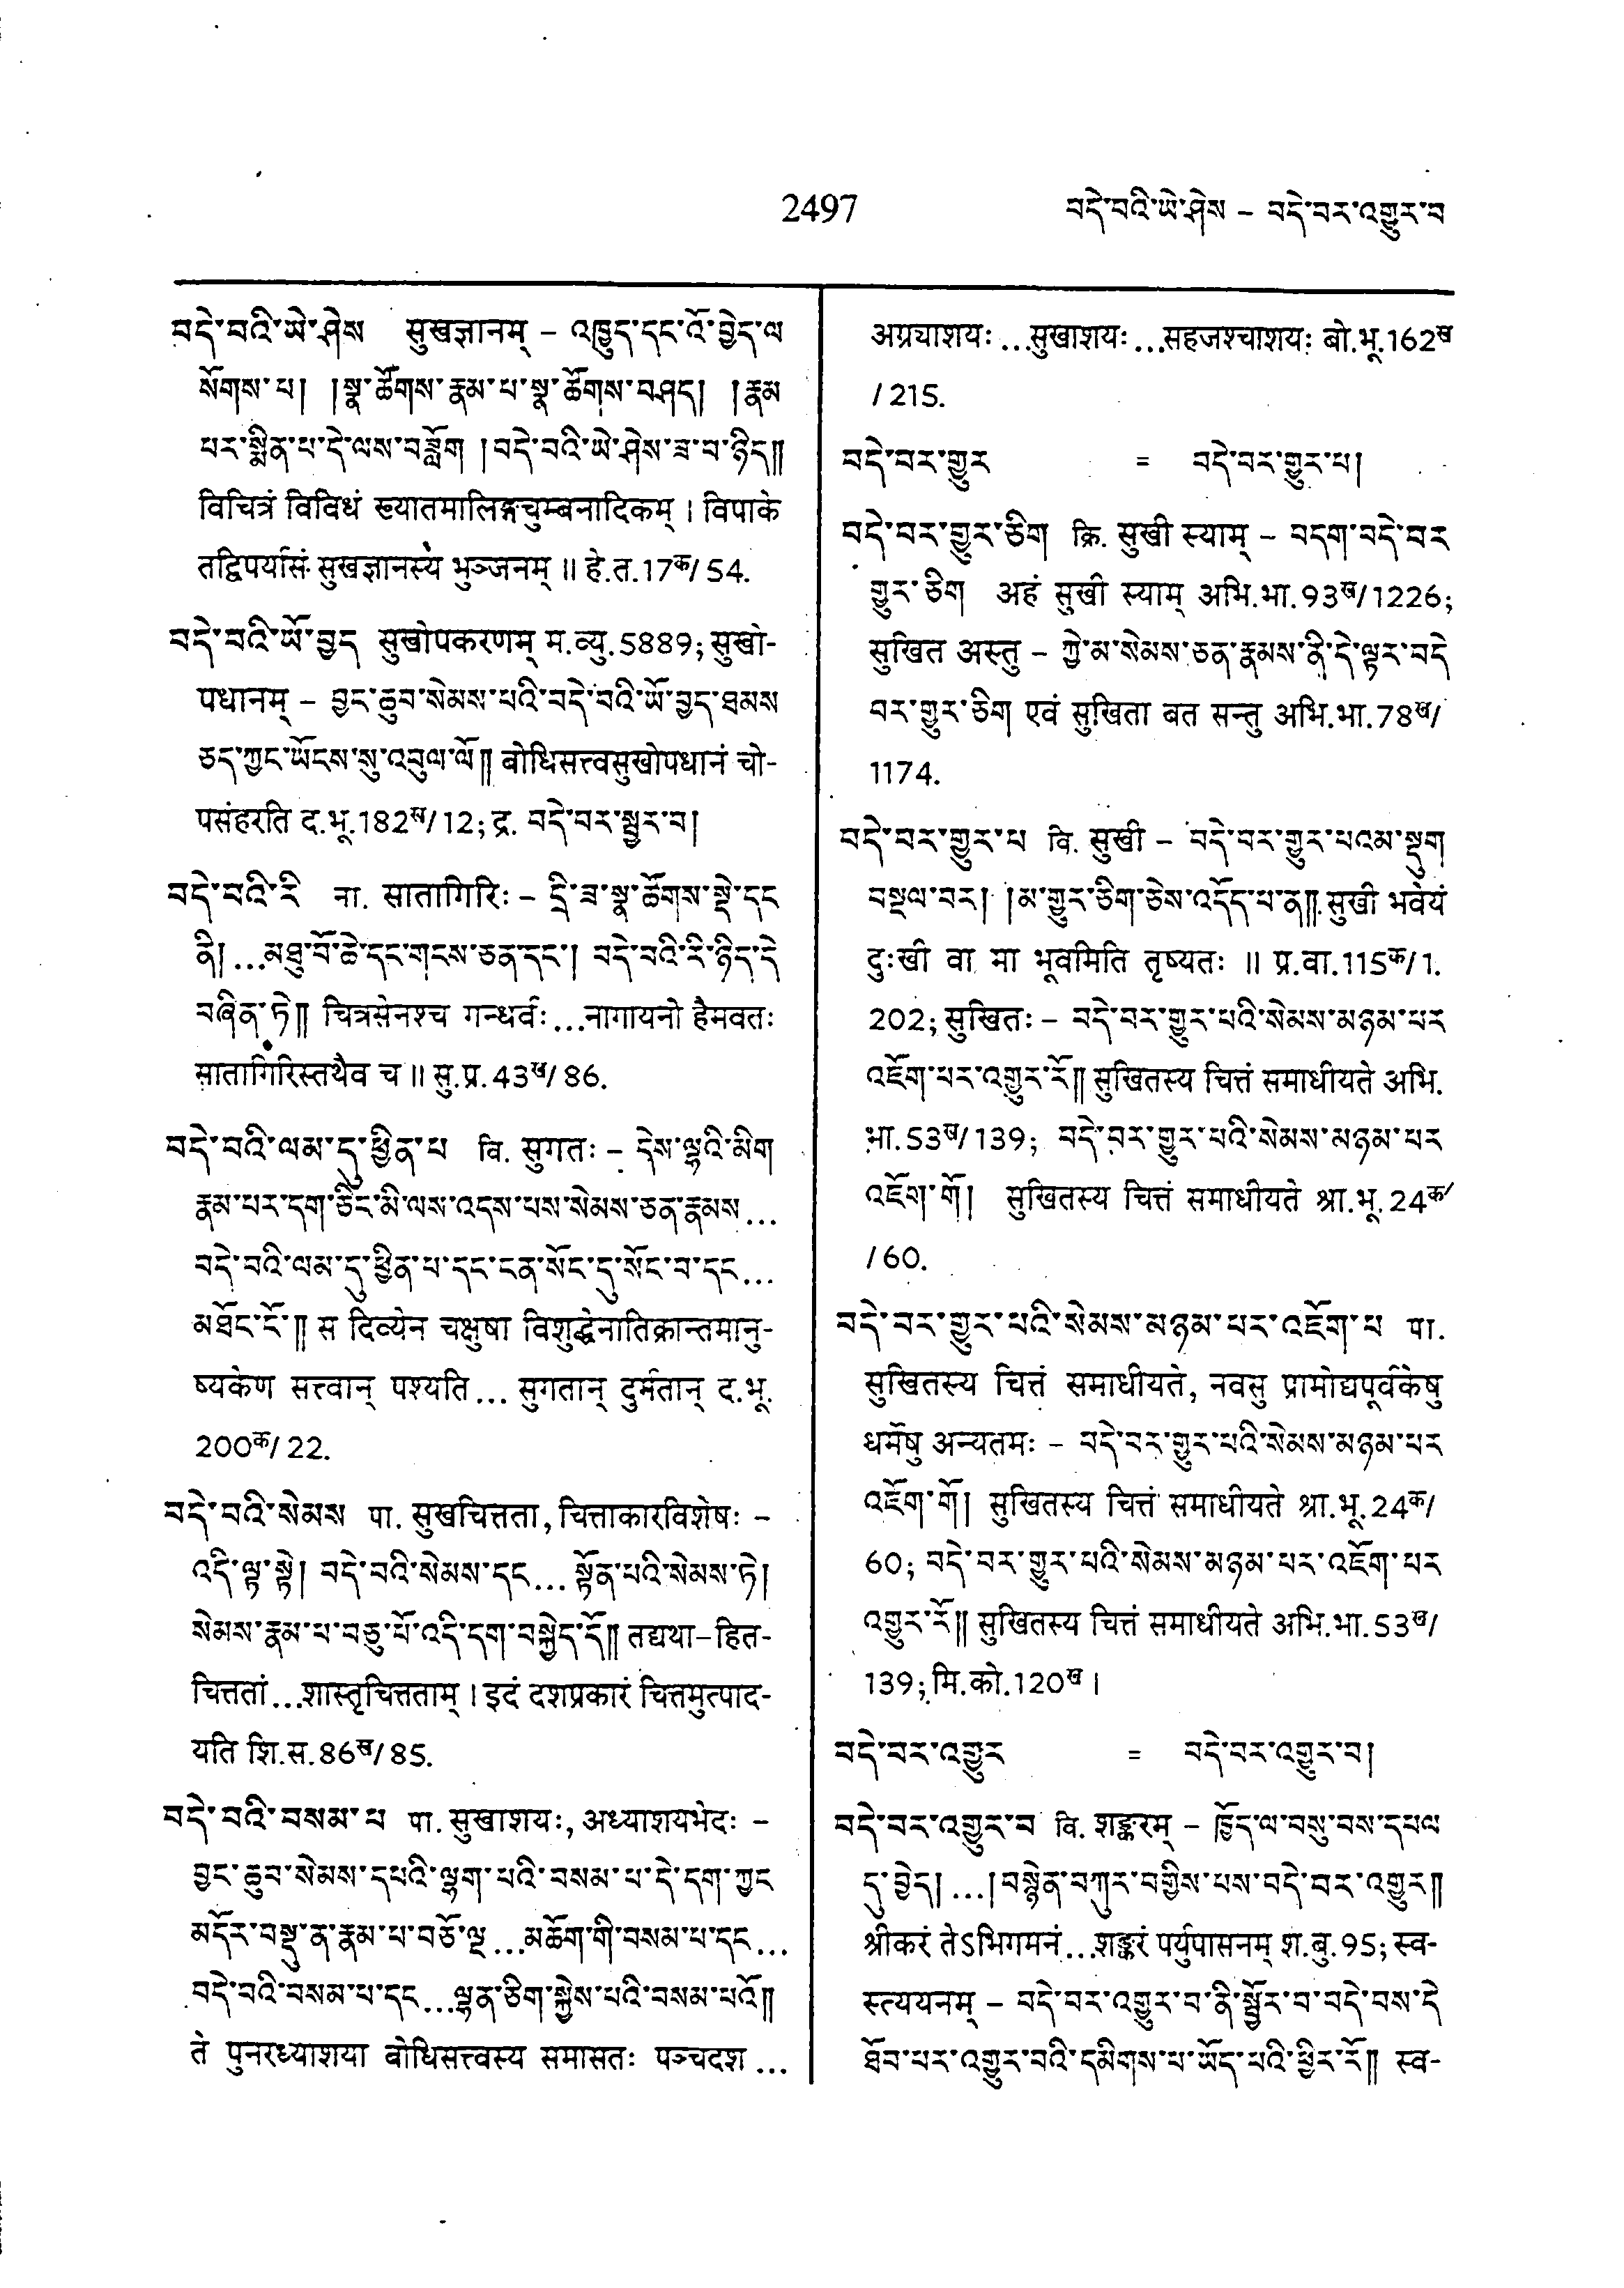 2497
བདེ་བའི་ཡེ་ཤེས – བདེ་བར་འགྱུར་བ
བདེ་བའི་ཡེ་ཤེས सुखज्ञानम् – འཁྱུད་དང་འོ་བྱེད་ལ
སོགས་པ། །སྣ་ཚོགས་རྣམ་པ་སྣ་ཚོགས་བཤད། །རྣམ
པར་སྨིན་པ་དེ་ལས་བཟློག །བདེ་བའི་ཡེ་ཤེས་ཟ་བ་ཉིད༎
विचित्रं विविधं ख्यातमालिङ्गचुम्बनादिकम् । विपाके
तद्विपर्यासं सुखज्ञानस्य भुञ्जनम् ॥ हे.त.17क/54.
བདེ་བའི་ཡོ་བྱད सुखोपकरणम् म.व्यु.5889; सुखो-
पधानम् – བྱང་ཆུབ་སེམས་པའི་བདེ་བའི་ཡོ་བྱད་ཐམས
ཅད་ཀྱང་ཡོངས་སུ་འབུལ་ལོ༎ बोधिसत्त्वसुखोपधानं चो-
पसंहरति द.भू.182ख/12; द्र. བདེ་བར་སྦྱར་བ།
བདེ་བའི་རི ना. सातागिरिः – དྲི་ཟ་སྣ་ཚོགས་སྡེ་དང
ནི། ...མཐུ་བོ་ཆེ་དང་གངས་ཅན་དང་། བདེ་བའི་རི་ཉིད་དེ
བཞིན་ཏེ༎ चित्रसेनश्च गन्धर्वः ...नागायनो हैमवतः
सातागिरिस्तथैव च ॥ सु.प्र.43ख/86.
བདེ་བའི་ལམ་དུ་ཕྱིན་པ वि. सुगतः – དེས་ལྷའི་མིག
རྣམ་པར་དག་ཅིང་མི་ལས་འདས་པས་སེམས་ཅན་རྣམས...
བདེ་བའི་ལམ་དུ་ཕྱིན་པ་དང་ངན་སོང་དུ་སོང་བ་དང...
མཐོང་ངོ་༎ स दिव्येन चक्षुषा विशुद्धेनातिक्रान्तमानु-
ष्यकेण सत्त्वान् पश्यति... सुगतान् दुर्मतान् द.भू.
200क/22.
བདེ་བའི་སེམས पा. सुखचित्तता, चित्ताकारविशेषः –
འདི་ལྟ་སྟེ། བདེ་བའི་སེམས་དང... སྟོན་པའི་སེམས་ཏེ།
སེམས་རྣམ་པ་བཅུ་པོ་འདི་དག་བསྐྱེད་དོ༎ तद्यथा–हित-
चित्ततां ...शास्तृचित्तताम् । इदं दशप्रकारं चित्तमुत्पाद-
यति शि.स.86ख/85.
བདེ་བའི་བསམ་པ पा. सुखाशयः, अध्याशयभेदः –
བྱང་ཆུབ་སེམས་དཔའི་ལྷག་པའི་བསམ་པ་དེ་དག་ཀྱང
མདོར་བསྡུ་ན་རྣམ་པ་བཅོ་ལྔ...མཆོག་གི་བསམ་པ་དང...
བདེ་བའི་བསམ་པ་དང...ལྷན་ཅིག་སྐྱེས་པའི་བསམ་པའོ༎
ते पुनरध्याशया बोधिसत्त्वस्य समासतः पञ्चदश ...
अग्र्याशयः ...सुखाशयः ...सहजश्चाशयः बो.भू.162ख
/215.
བདེ་བར་གྱུར = བདེ་བར་གྱུར་པ།
བདེ་བར་གྱུར་ཅིག क्रि. सुखी स्याम् – བདག་བདེ་བར
གྱུར་ཅིག अहं सुखी स्याम् अभि.भा.93ख/1226;
सुखित अस्तु – ཀྱེ་མ་སེམས་ཅན་རྣམས་ནི་དེ་ལྟར་བདེ
བར་གྱུར་ཅིག एवं सुखिता बत सन्तु अभि.भा.78ख/
1174.
བདེ་བར་གྱུར་པ वि. सुखी – བདེ་བར་གྱུར་པའམ་སྡུག
བསྔལ་བར། །མ་གྱུར་ཅིག་ཅེས་འདོད་པ་ན༎ सुखी भवेयं
दुःखी वा मा भूवमिति तृष्यतः ॥ प्र.वा.115क/1.
202; सुखितः – བདེ་བར་གྱུར་པའི་སེམས་མཉམ་པར
འཇོག་པར་འགྱུར་རོ༎ सुखितस्य चित्तं समाधीयते अभि.
भा.53ख/139; བདེ་བར་གྱུར་པའི་སེམས་མཉམ་པར
འཇོག་གོ། सुखितस्य चित्तं समाधीयते श्रा.भू.24क
/60.
བདེ་བར་གྱུར་པའི་སེམས་མཉམ་པར་འཇོག་པ पा.
सुखितस्य चित्तं समाधीयते, नवसु प्रामोद्यपूर्वकेषु
धर्मेषु अन्यतमः – བདེ་བར་གྱུར་པའི་སེམས་མཉམ་པར
འཇོག་གོ། सुखितस्य चित्तं समाधीयते श्रा.भू.24क/
60; བདེ་བར་གྱུར་པའི་སེམས་མཉམ་པར་འཇོག་པར
འགྱུར་རོ༎ सुखितस्य चित्तं समाधीयते अभि.भा.53ख/
139; मि.को.120ख ।
བདེ་བར་འགྱུར = བདེ་བར་འགྱུར་བ།
བདེ་བར་འགྱུར་བ वि. शङ्करम् – ཁྱོད་ལ་བསུ་བས་དཔལ
དུ་བྱེད། ...།བསྙེན་བཀུར་བགྱིས་པས་བདེ་བར་འགྱུར༎
श्रीकरं तेऽभिगमनं ...शङ्करं पर्युपासनम् श.बु.95; स्व-
स्त्ययनम् – བདེ་བར་འགྱུར་བ་ནི་སྦྱོར་བ་བདེ་བས་དེ
ཐོབ་པར་འགྱུར་བའི་དམིགས་པ་ཡོད་པའི་ཕྱིར་རོ༎ स्व-